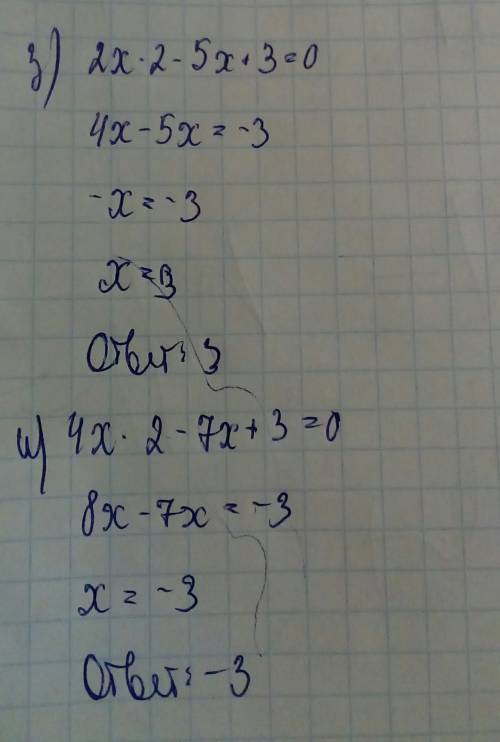 з) 2x · 2 - 5x + 3 = 0
4x - 5x = -3
-x = -3
x = 3
Ответ: 3
и) 4x · 2 - 7x + 3 = 0
8x - 7x = -3
x = -3
Ответ: -3